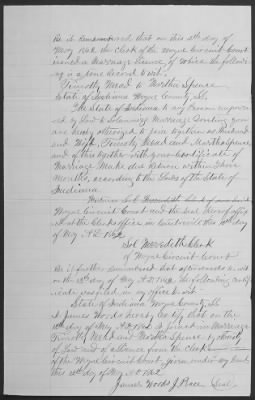 Be it remembered that on this 10th day of
May 1842 the Clerk of the Wayne Circuit Court
issued a Marriage License of which the follow-
ing is a true Record to wit:
Timothy Mead to Martha Spence
State of Indiana Wayne County Ss.
The State of Indiana to any Person empower-
ed by Law to Solemnize Marriage Greeting you
are hereby authorized to join together as Husband
and Wife, Timothy Mead and Martha Spence
and of this together with your certificate of
Marriage Make due Return within three
Months, according to the Laws of the State of
Indiana
Witness Sol
Wayne Circuit Court and the Seal thereof affixed
at the Clerks office in Centreville this 10th day
of May A.D. 1842
Sol Meredith Clerk
of Wayne Circuit Court
Be it further remembered that afterwards to wit
on the day of May A.D. 1842, the following certi-
ficate was filed in my office to wit:
State of Indiana Wayne County Ss
I James Woods hereby Certify that on the
day of May A.D. 1842 I joined in Marriage
Timothy Mead and Martha Spence by authority
of Law and of a License from the Clerk
of the Wayne Circuit Court, given under my hand
this 12th day of May A.D. 1842
James Woods J. Peace Seal